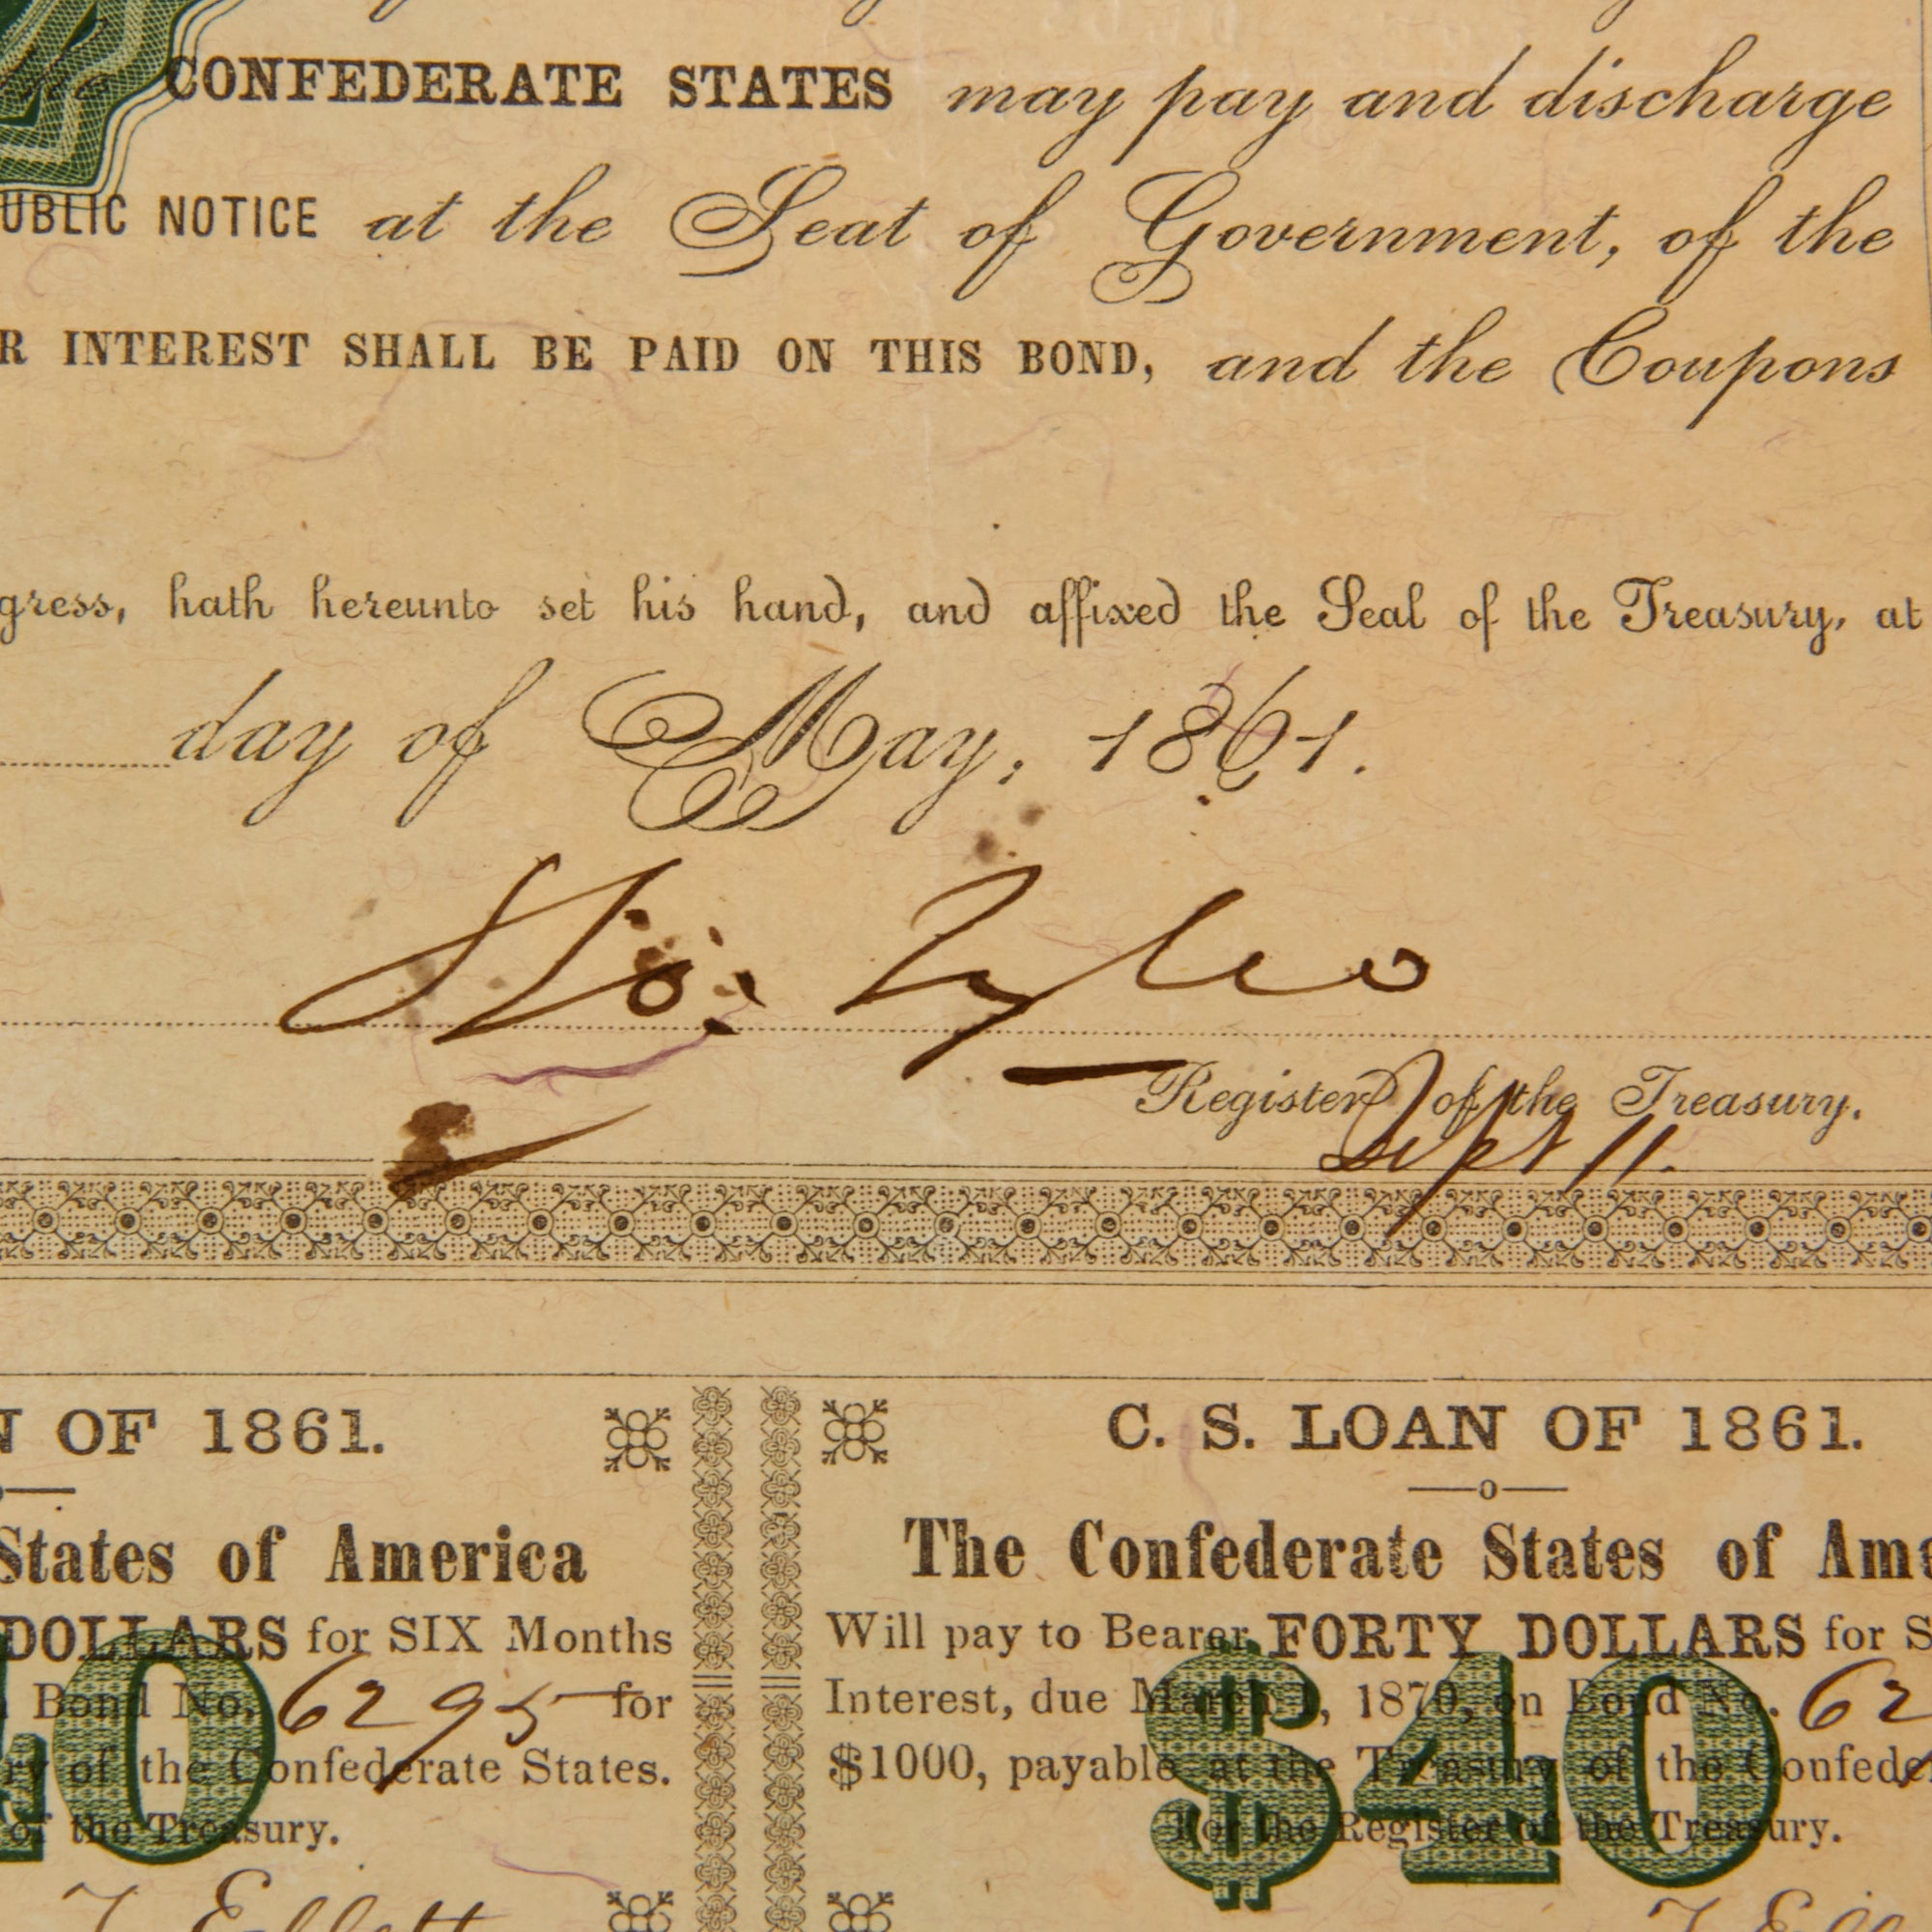 CONFEDERATE STATES may pay and discharge
UBLIC NOTICE at the Seat of Government, of the
R INTEREST SHALL BE PAID ON THIS BOND, and the Coupons
gress, hath hereunto set his hand, and affixed the Seal of the Treasury, at
day of May, 1861.
Ro: Tyler
Register of the Treasury.
Sept 11.
N OF 1861.
States of America
DOLLARS for SIX Months
Bond No. 6295 for
ry of the Confederate States.
of the Treasury.
T Ellett
C. S. LOAN OF 1861.
The Confederate States of Ame
Will pay to Bearer FORTY DOLLARS for S
Interest, due March 1, 1870, on Bond No. 62
$1000, payable at the Treasury of the Confede
For the Register of the Treasury.
$40
40
T Ell